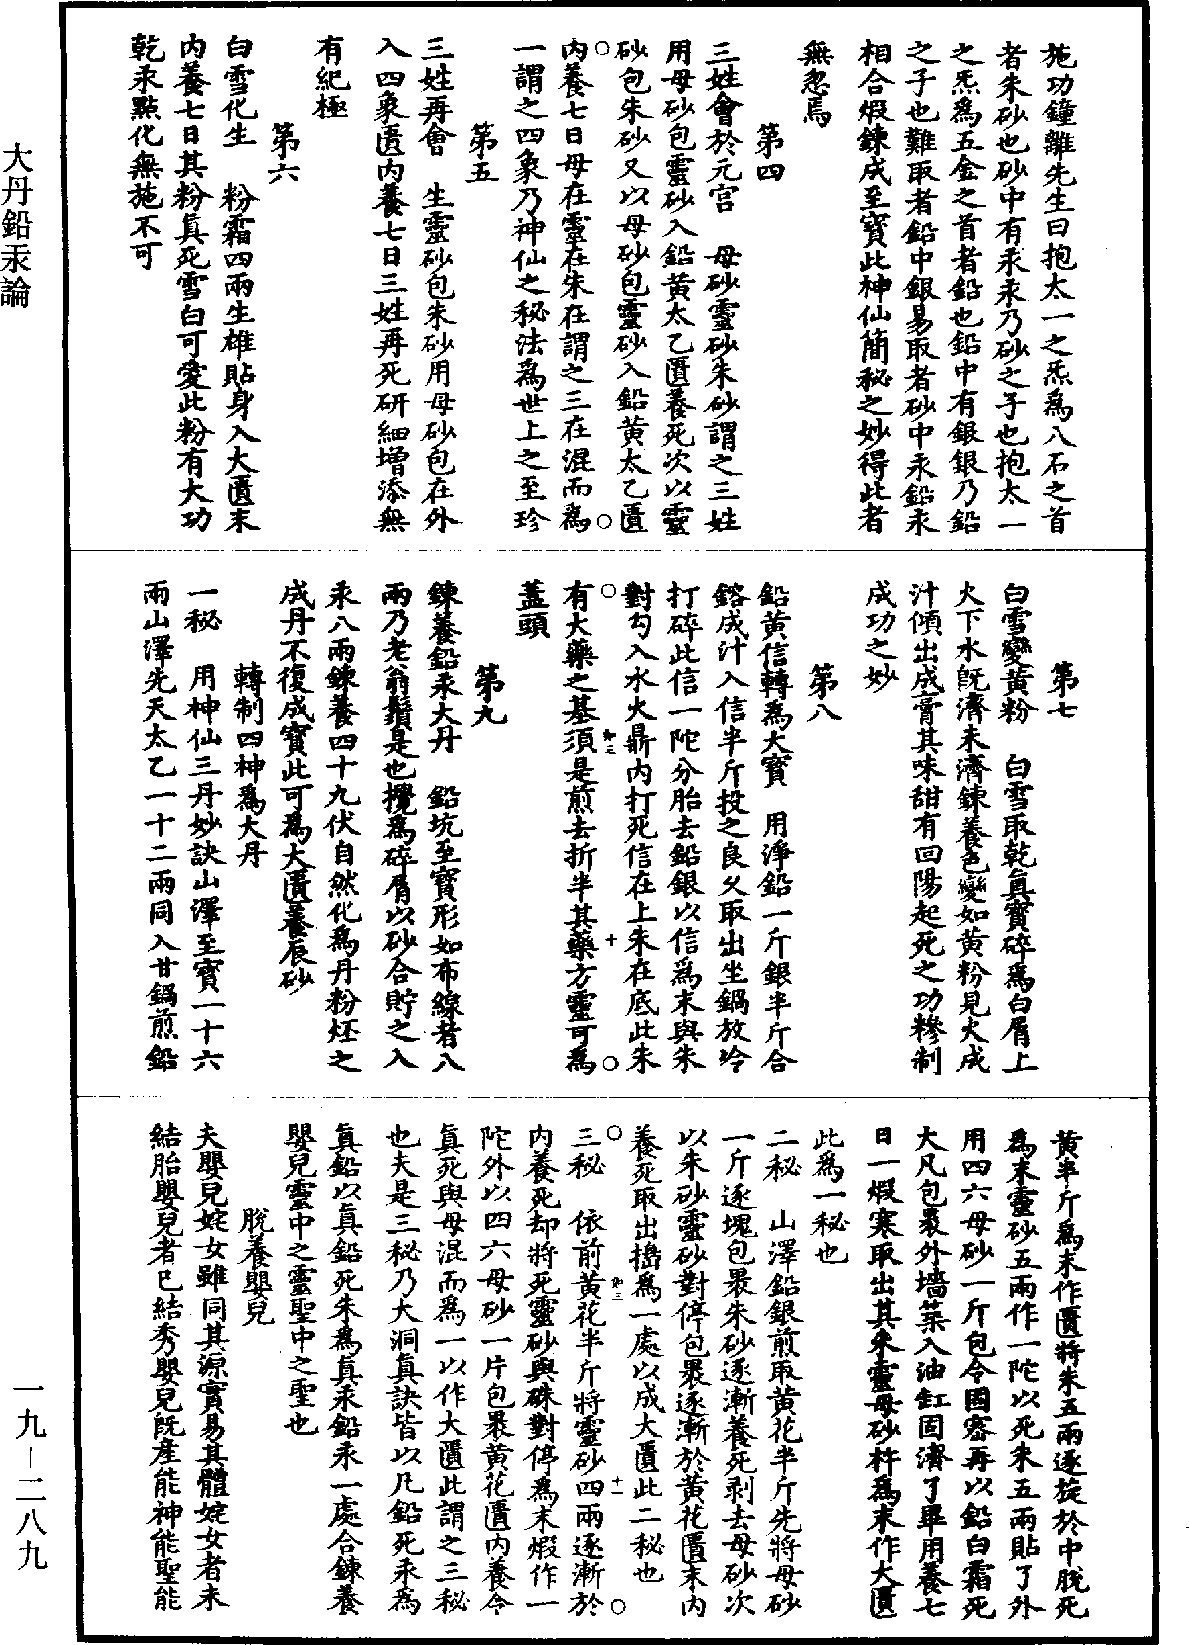 施功鐘離先生曰抱太一之炁爲八石之首
者朱砂也砂中有汞汞乃砂之子也抱太一
之炁爲五金之首者鉛也鉛中有銀銀乃鉛
之子也難取者鉛中銀易取者砂中汞鉛汞
相合煅鍊成至寶此神仙簡秘之妙得此者
無忽焉
第四
三姓會於元宮　母砂靈砂朱砂謂之三姓
用母砂包靈砂入鉛黃太乙匱養死次以靈
砂包朱砂又以母砂包靈砂入鉛黃太乙匱
內養七日母在靈在朱在謂之三在混而爲
一謂之四象乃神仙之秘法爲世上之至珍
第五
三姓再會　生靈砂包朱砂用母砂包在外
入四象匱內養七日三姓再死研細增添無
有紀極
第六
白雪化生　粉霜四兩生雄貼身入大匱末
內養七日其粉眞死雪白可愛此粉有大功
乾汞點化無施不可
第七
白雪變黃粉　白雪取乾眞寶碎爲白屑上
火下水旣濟未濟鍊養色變如黃粉見火成
汁傾出成膏其味甜有回陽起死之功糝制
成功之妙
第八
鉛黃信轉爲大寶　用淨鉛一斤銀半斤合
鎔成汁入信半斤投之良久取出坐鍋放冷
打碎此信一陀分胎去鉛銀以信爲末與朱
對勻入水火鼎內打死信在上朱在底此朱
有大藥之基須是煎去折半其藥方靈可爲
蓋頭
第九
鍊養鉛汞大丹　鉛坑至寶形如布線者八
兩乃老翁鬚是也攪爲碎屑以砂合貯之入
汞八兩鍊養四十九伏自然化爲丹粉烓之
成丹不復成寶此可爲大匱養辰砂
轉制四神爲大丹
一秘　用神仙三丹妙訣山澤至寶一十六
兩山澤先天太乙一十二兩同入甘鍋煎鉛
黃半斤爲末作匱將朱五兩逐旋於中脫死
爲末靈砂五兩作一陀以死朱五兩貼了外
用四六母砂一斤包令固密再以鉛白霜死
大凡包裹外墻葉入油缸固濟了畢用養七
日一煅寒取出其朱靈母砂杵爲末作大匱
此爲一秘也
二秘　山澤鉛銀煎取黃花半斤先將母砂
一斤逐塊包裹朱砂逐漸養死剥去母砂次
以朱砂靈砂對停包裹逐漸於黃花匱末內
養死取出搗爲一處以成大匱此二秘也
三秘　依前黃花半斤將靈砂四兩逐漸於
內養死却將死靈砂與硃對停爲末煅作一
陀外以四六母砂一片包裹黃花匱內養令
眞死與母混而爲一以作大匱此謂之三秘
也夫是三秘乃大洞眞訣皆以凡鉛死汞爲
眞鉛以眞鉛死朱爲眞汞鉛汞一處合鍊養
嬰兒靈中之靈聖中之聖也
脫養嬰兒
夫嬰兒姹女雖同其源實易其體姹女者未
結胎嬰兒者已結秀嬰兒旣產能神能聖能
大丹鉛汞論
一九—二八九